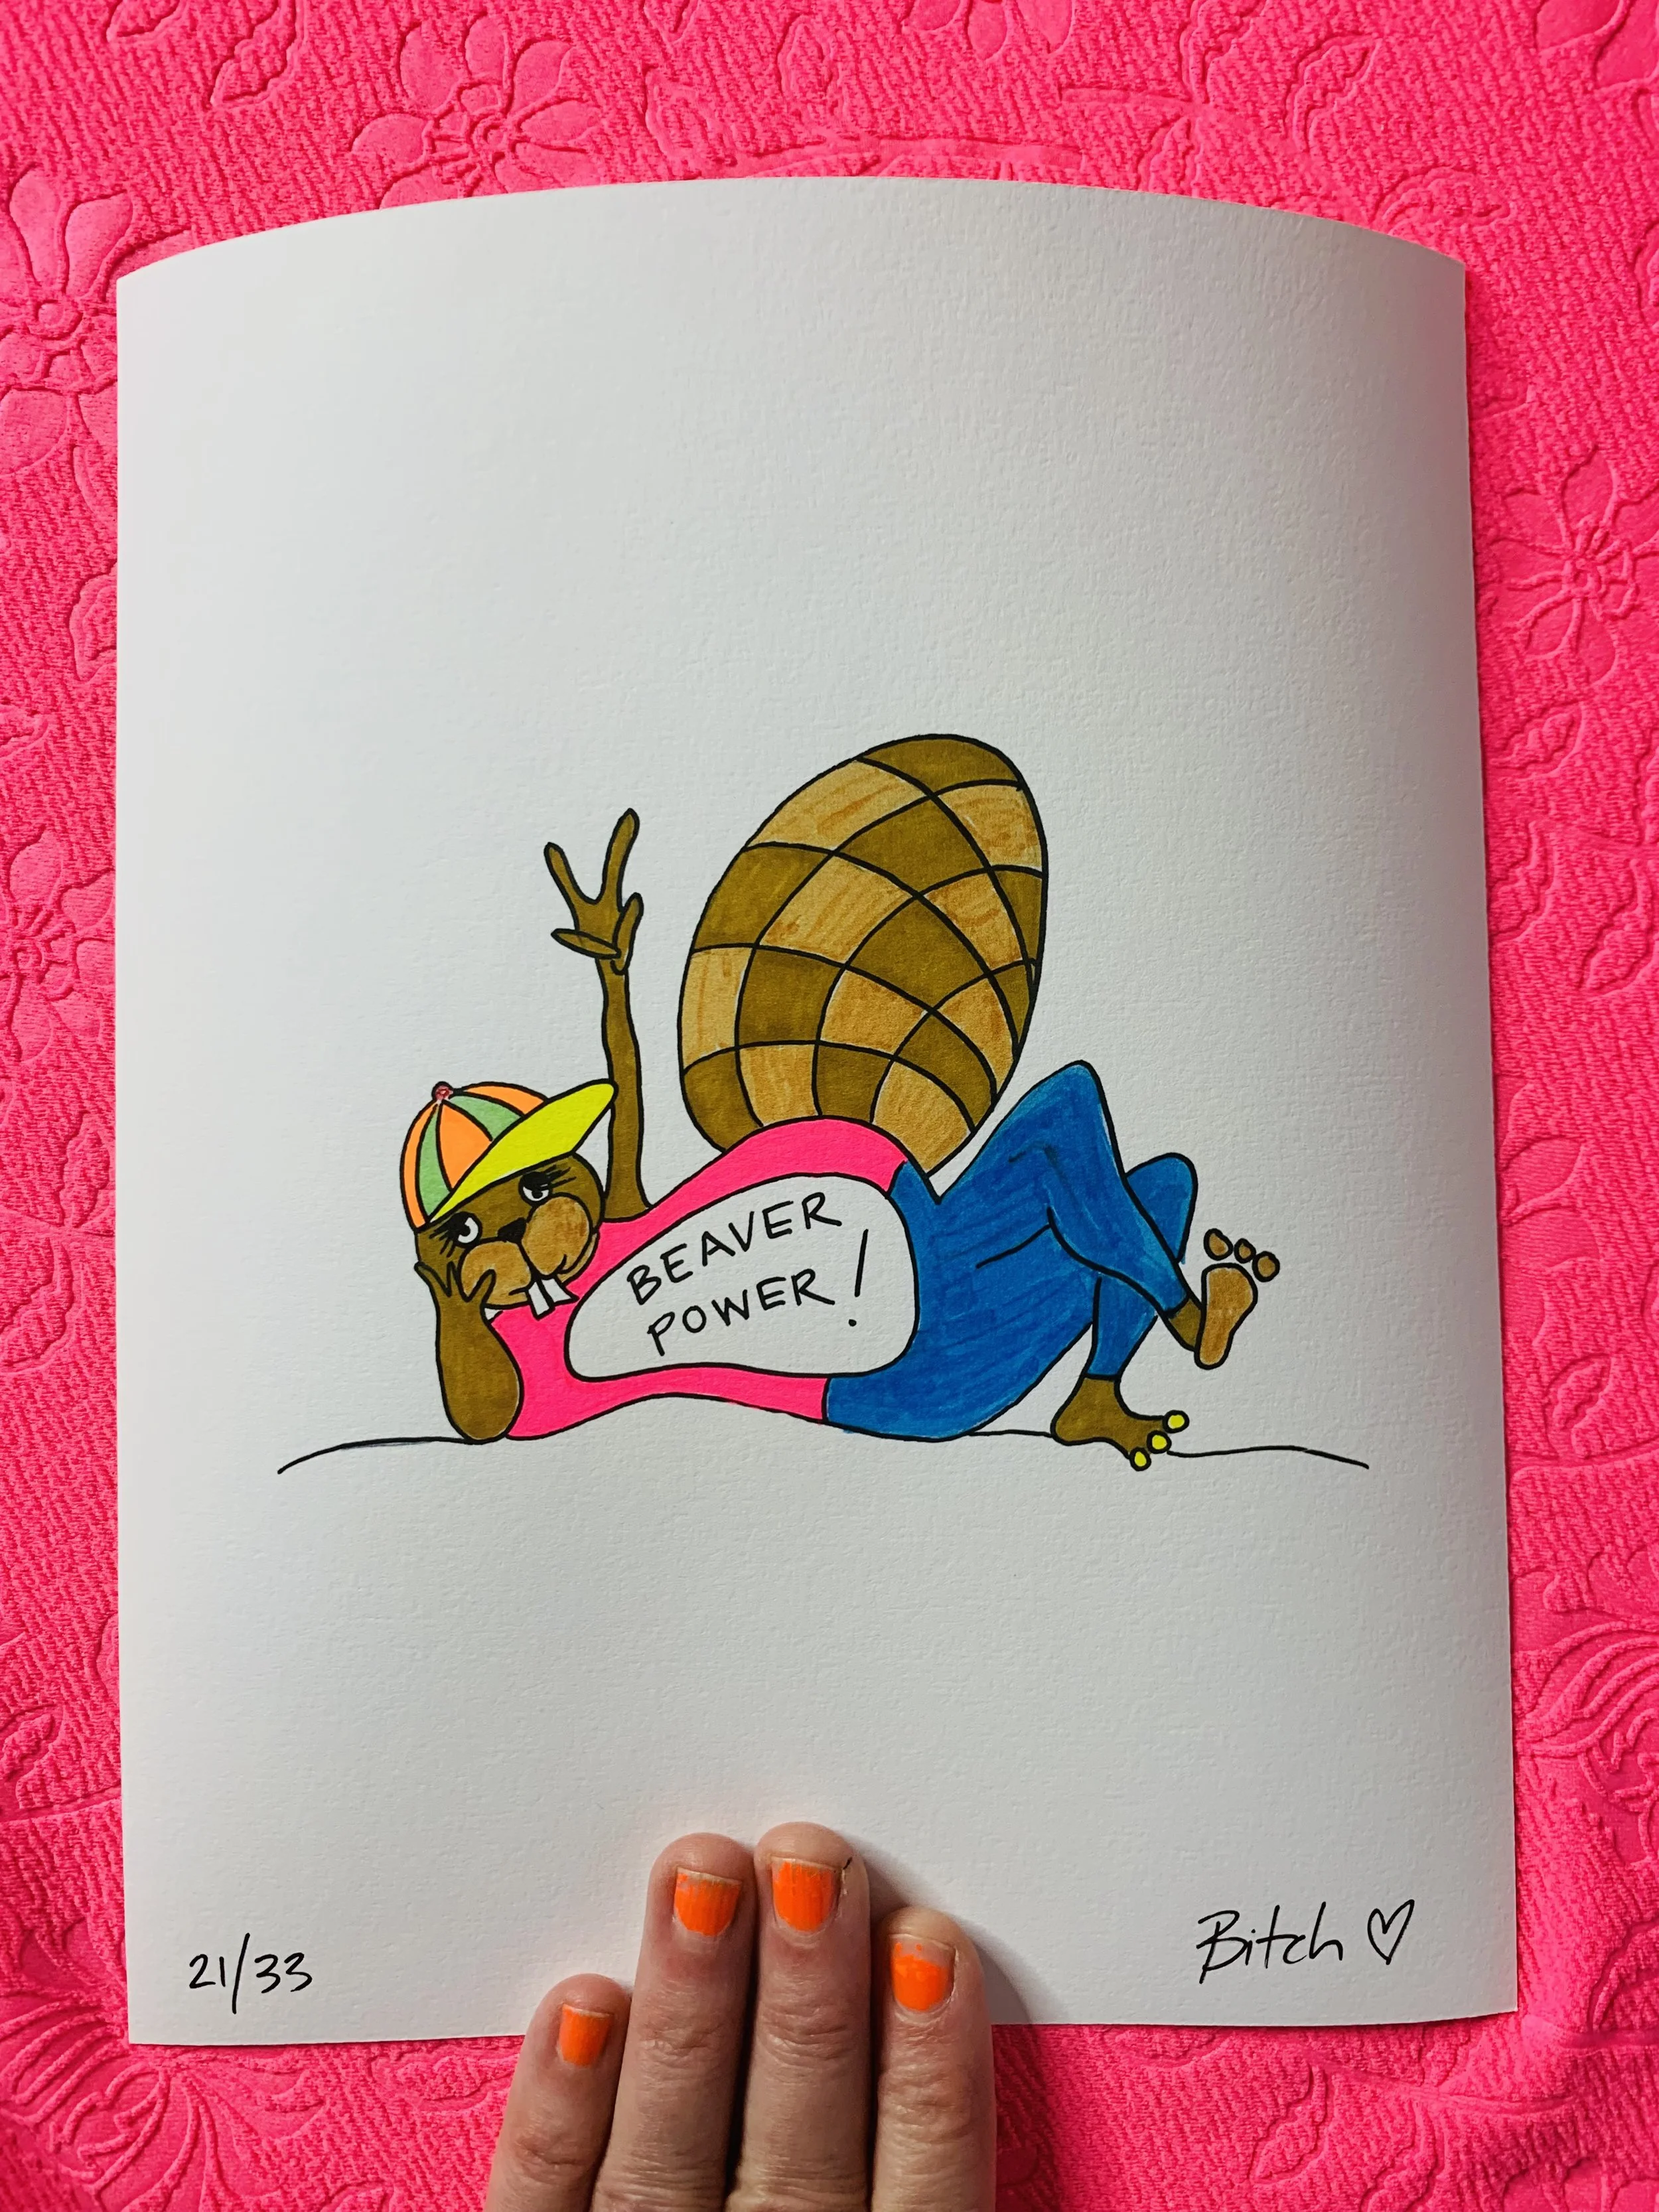 BEAVER
POWER!
21/33
Bitch ♡